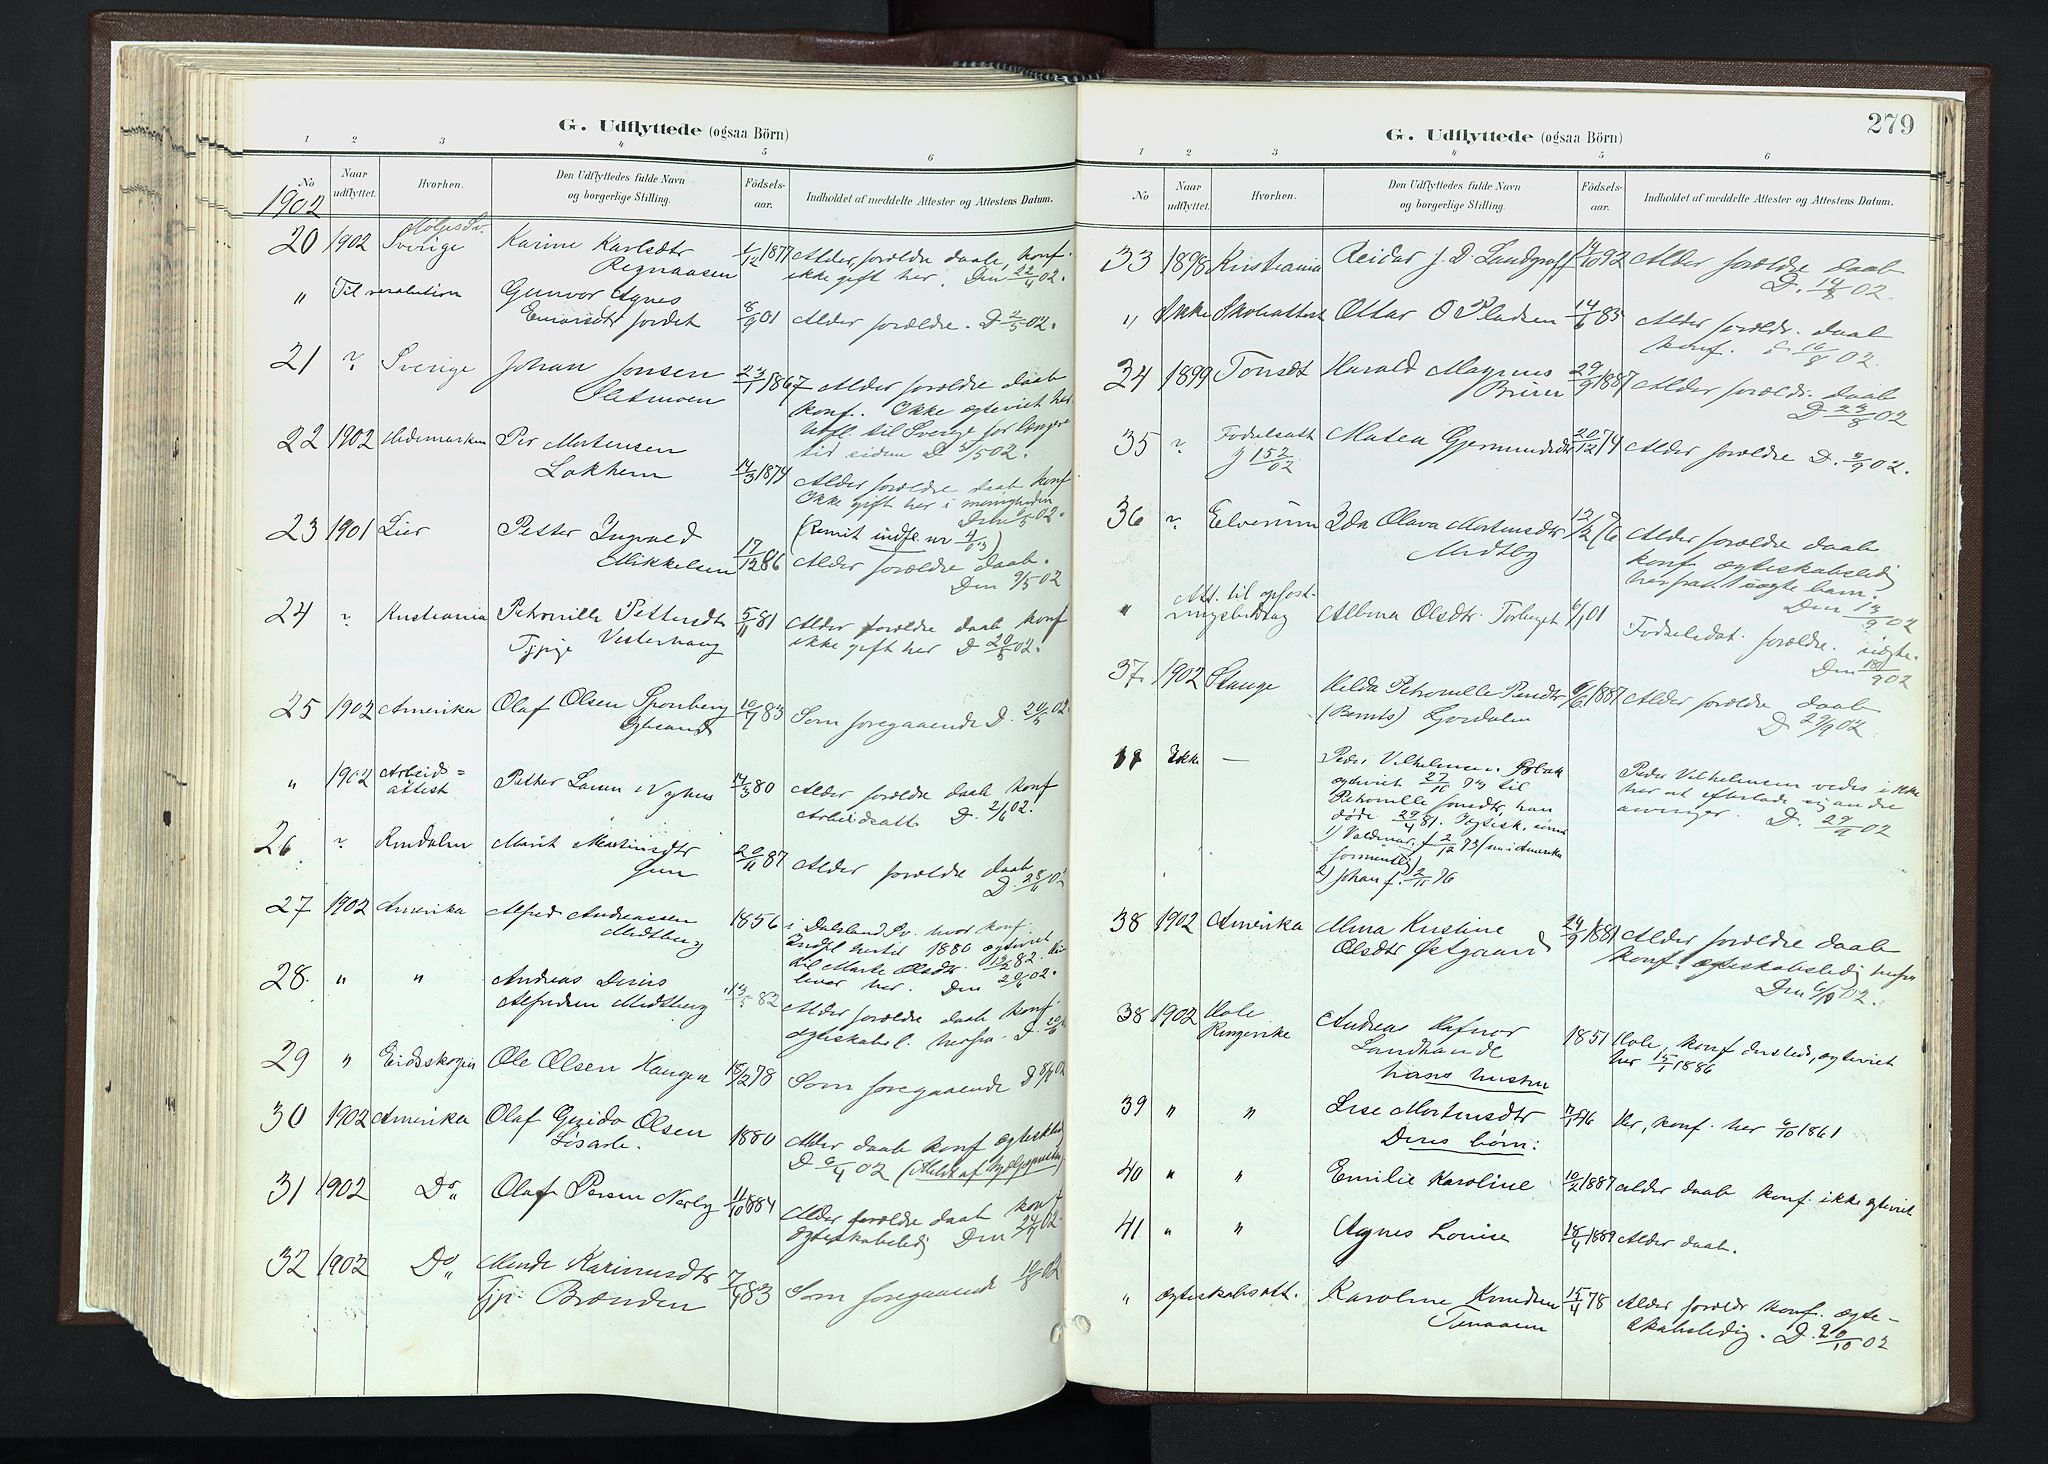 G. Udflyttede (ogsaa Börn)
1 2 3 4 5 6
No Naar udflyttet. Hvorhen. Den Udflyttedes fulde Navn og borgerlige Stilling. Födsels-aar. Indholdet af meddelte Attester og Attestens Datum.
1902
20 1902 Sverige Karine Karlsdtr 1877 Alder, forældre daab, konf.
ikke gift her. Den 22/4 02.
" Til resolution Gunvor Agnes
8/9 01 Alder forældre. D 2/5 02.
21 " Sverige Johan Jonsen 23/1 1867 Alder forældre daab
konf. Ikke ægteviet her
Utfl. til Sverige for længere
tid siden D 5/5 02.
22 1902 Hedemarken Per Mortensen
Løkhem 14/3 1874 Alder forældre daab konf
Ikke gift her i menigheden
23 1901 Lier Petter Ingvald
Mikkelsen 17/12 86 Alder forældre daab.
Den 9/5 02
24 " Kristiania Petronille Pettersdtr 5/11 81 Alder forældre daab konf
Vesterhaug ikke gift her D 20/5 02.
25 1902 Amerika Olaf Olsen Sponberg 10/7 83 Som foregaaende D. 20/5 02
" 1902 Arbeids=
attest 14/3 80 Alder forældre daab konf
Arbeidsatt. D. 2/6 02.
26 " Rendalen Marit Martinsdtr 20/11 87 Alder forældre daab
27 1902 Amerika Alfred Andreassen
Midtberg 1856 i Dalsland Sv. hvor konf.
Indfl. hertil 1880 ægteviet
til Marte Olsdtr.
lever her. Den
28. " " Andreas Dinis
Alfredsen Midtberg 13/5 82 Alder forældre daab konf.
29 " Eidskogen Ole Olsen Haugen 18/2 78 Som foregaaende D 8/7 02
30 1902 Amerika Olaf Guido Olsen
1880 Alder daab konf
31 1902 Do Olaf Persen Nerby 11/10 884 Alder forældre daab konf
ægteskabsledig Den 24/7 02.
32 1902 Do Karinusdtr
Brænden 7/4 83 Som foregaaende 12/8 02
G. Udflyttede (ogsaa Börn) 279
1 2 3 4 5 6
No Naar udflyttet. Hvorhen. Den Udflyttedes fulde Navn og borgerlige Stilling. Födsels-aar. Indholdet af meddelte Attester og Attestens Datum.
33 1898 Kristiania Reidar J. D. Landgraff 14/10 92 Alder forældre daab
D. 14/8 02.
" Ikke Skoleattest Ottar O Pladsen 14/6 83 Alder forældr. daab
konf. D 16/8 02.
34 1899 Tonset Harald Magnus 29/9 1887 Alder forældr. daab
D 23/8 02
35 " Fødselsatt Matea Gjermundsdtr 20/12 74 Alder forældre D. 3/9 02.
36 " Elverum Ida Olava Mortensdtr
Midtby 12/2 76 Alder forældre daab
konf ægteskabsledig
Den 13/9 02
" Att. til opfost-
ringsbidrag Albina Olsdtr. Torberget 6/1 01 Fødselsdat. forældre. uægte.
Den 18/9 02
37. 1902 Stange Hilda Petronelle 1887 Alder forældre daab
D 29/9 02.
Ikke — Peder Vilhelmsen
ægteviet 27/10 73 til
Petronelle Jonsdtr, han
døde 29/4 81.
1) Valdemar f 2/12 73 (nu i Amerika
formentlig)
2) Johan f. 2/11 76
Peder Vilhelmsen vedes ikke
her at efterlade sig andre
arvinger. D. 29/9 02
38 1902 Amerika Mina Kristine
Olsdtr Østgaard 24/9 1881 Alder forældre daab
konf. ægteskabsledig herfra
Den 6/10 02.
38 1902 Hole
Ringerike Andreas Hafnor
Landhandl. 1851 Hole, konf dersteds, ægteviet
her 15/1 1886
hans hustru
39 " " Lise Mortensdtr Her, konf. her 6/10 1861
Deres børn:
40 " " Emilie Karoline 10/2 1887 alder daab konf. ikke ægteviet
41 " " Agnes Louise 18/4 1889 Alder daab.
" Ægteskabsatt. Karoline Knudsen 15/4 78 Alder forældr konf. ægte-
skabsledig. D. 20/10 02